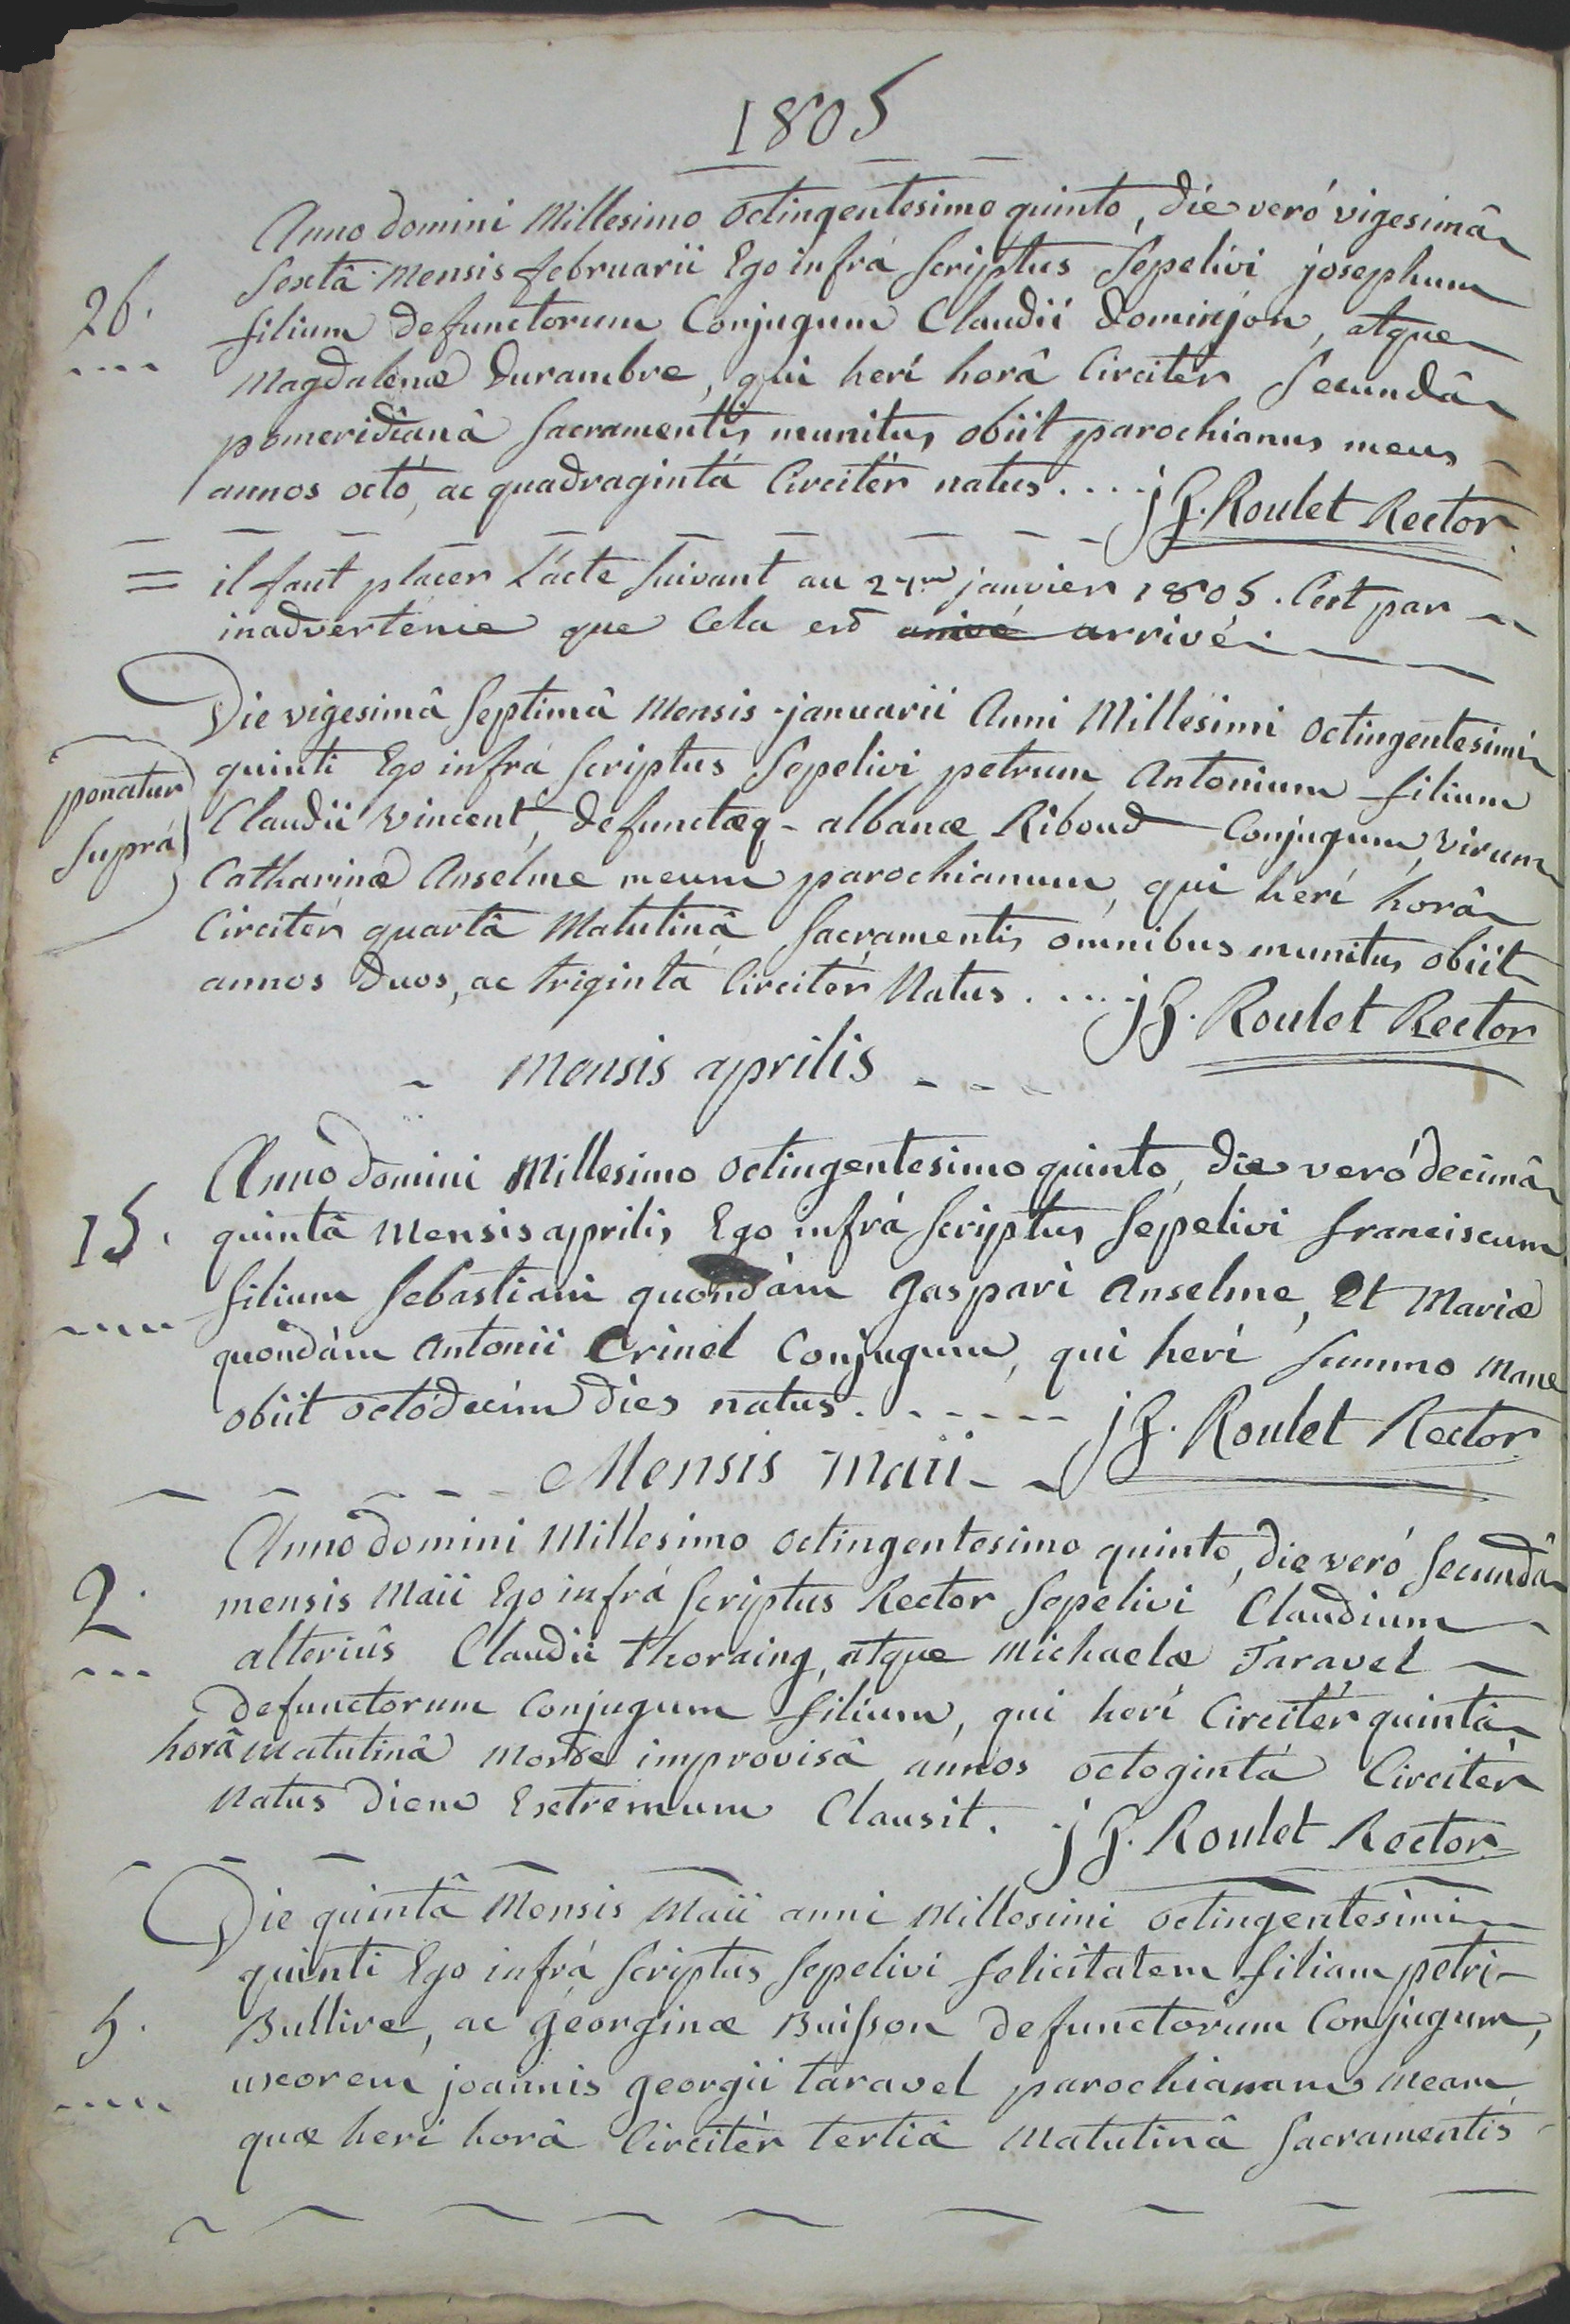 1805
Anno domini Millesimo octingentesimo quinto, die veró vigesimâ
26.
Sextâ Mensis februarii Ego infrá scriptus Sepelivi josephum
filium defunctorum Conjugum Claudii dominjon, atque
Magdalenæ Durambre, qui herí horâ Circitér Secundâ
pomeridianâ Sacramentis munitus obiit parochianus meus
annos octó, ac quadragintá Circitér natus....
j G. Roulet Rector
= il faut placer L'acte suivant au 27me janvier 1805. C'est par
inadvertence que Cela est arrivé arrivé.
Die vigesimâ Septimâ Mensis januarii Anni Millesimi octingentesimi
ponatur
suprá
quinti Ego infrá scriptus Sepelivi petrum Antonium filium
Claudii vincent, defunctæq. albanæ Riboud Conjugum, virum
Catharinæ Anselme meum parochianum, qui herí horâ
Circitér quartâ Matutinâ Sacramentis omnibus munitus obiit
annos duos, ac trigintá Circitér Natus....
j G. Roulet Rector
Mensis aprilis
Anno domini Millesimo octingentesimo quinto, die veró decimâ
15.
quintâ Mensis aprilis Ego infrá scriptus Sepelivi franciscum
filium Sebastiani quondám Gaspari Anselme, Et Mariæ
quondám Antonii Crinel Conjugum, qui herí summo Mane
obiit octódecím dies natus......
j G. Roulet Rector
Mensis Maii
Anno domini Millesimo octingentesimo quinto, die veró Secundâ
2.
mensis Maii Ego infrá scriptus Rector Sepelivi Claudium
alteriûs Claudii thoraing, atque Michaelæ Taravel
defunctorum Conjugum filium, qui herí Circitér quintâ
horâ matutinâ morte improvisâ annos octogintá Circitér
Natus diem Extremum Clausit.
j G. Roulet Rector
Die quintâ Mensis Maii anni Millesimi octingentesimi
quinti Ego infrá scriptus Sepelivi felicitatem filiam petri
5.
Bullire, ac georginæ Buisson defunctorum Conjugum,
uxorem joannis georgii taravel parochianam meam
quæ herí horâ Circitér tertiâ Matutinâ Sacramentis